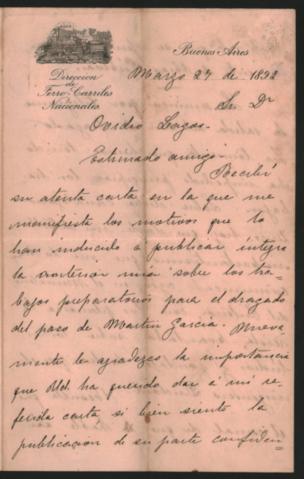 Direccion
de
Ferro-Carriles
Nacionales
Buenos Aires
Marzo 27 de 1892
Sr. Dr
Ovidio Lagos.
Estimado amigo. Recibí
su atenta carta en la que me
manifiesta los motivos que lo
han inducido a publicar íntegra
la anterior mia sobre los tra-
bajos preparatorios para el dragado
del paso de Martin Garcia. Nueva-
mente le agradezco la importancia
que Ud. ha querido dar á mi re-
ferida carta si bien siento la
publicacion de su parte confiden